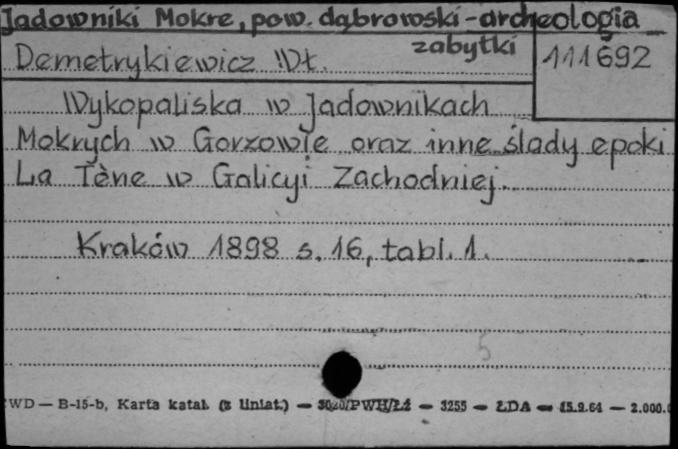 Jadowniki Mokre, pow. dąbrowski - archeologia
zabytki
Demetrykiewicz Wł.
111692
Wykopaliska w Jadownikach
Mokrych w Gorzowie oraz inne ślady epoki
La Tène w Galicyi Zachodniej.
Kraków 1898 s. 16, tabl. 1.
5
WD — B-15-b, Karta katal. (z liniat.) — 3020/PWH/ŁŹ — 3255 — ŁDA — 15.9.64 — 2.000.0